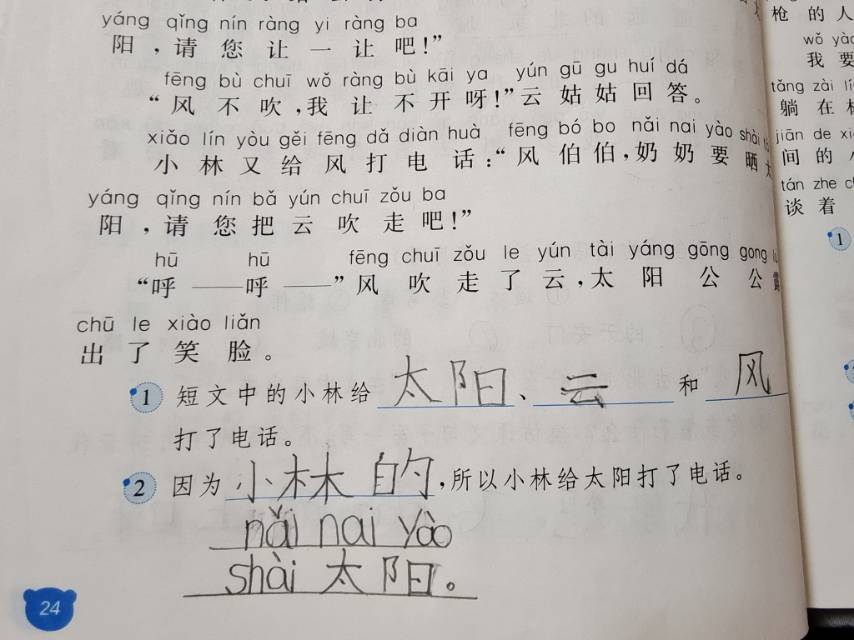 yáng qǐng nín ràng yi ràng ba
阳，请您让一让吧！”
fēng bù chuī wǒ ràng bù kāi ya yún gū gu huí dá
“风不吹，我让不开呀！”云姑姑回答。
xiǎo lín yòu gěi fēng dǎ diàn huà fēng bó bo nǎi nai yào shài
小林又给风打电话：“风伯伯，奶奶要晒
yáng qǐng nín bǎ yún chuī zǒu ba
阳，请您把云吹走吧！”
hū hū fēng chuī zǒu le yún tài yáng gōng gong
“呼——呼——”风吹走了云，太阳公公
chū le xiào liǎn
出了笑脸。
1 短文中的小林给太阳、云和风
打了电话。
2 因为小林的，所以小林给太阳打了电话。
nǎi nai yào
shài 太阳。
24
枪的人
wǒ yào
我要
tǎng zài
躺在
jiān de
间的
tán zhe
谈着
1